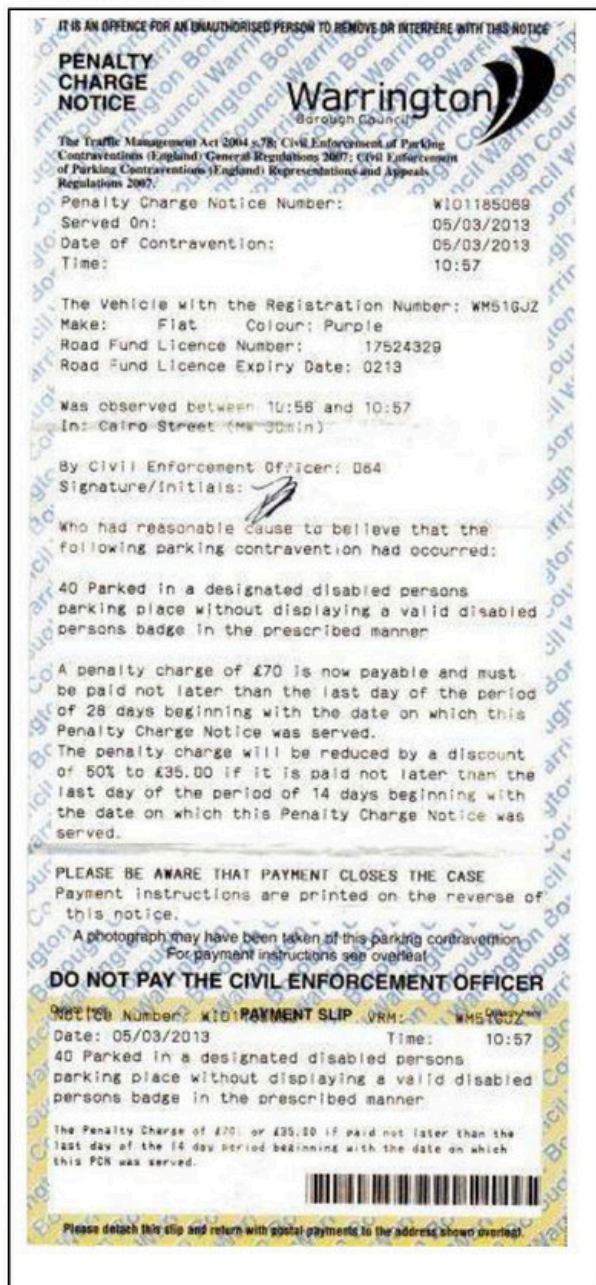 IT IS AN OFFENCE FOR AN UNAUTHORISED PERSON TO REMOVE OR INTERFERE WITH THIS NOTICE
PENALTY
CHARGE
NOTICE
Warrington
Borough Council
The Traffic Management Act 2004 s.78; Civil Enforcement of Parking
Contraventions (England) General Regulations 2007; Civil Enforcement
of Parking Contraventions (England) Representations and Appeals
Regulations 2007.
Penalty Charge Notice Number: WI01185069
Served On: 05/03/2013
Date of Contravention: 05/03/2013
Time: 10:57
The Vehicle with the Registration Number: WM51GJZ
Make: Fiat Colour: Purple
Road Fund Licence Number: 17524329
Road Fund Licence Expiry Date: 0213
Was observed between 10:56 and 10:57
In: Cairo Street (Mw 30min)
By Civil Enforcement Officer: 064
Signature/Initials:
Who had reasonable cause to believe that the
following parking contravention had occurred:
40 Parked in a designated disabled persons
parking place without displaying a valid disabled
persons badge in the prescribed manner
A penalty charge of £70 is now payable and must
be paid not later than the last day of the period
of 28 days beginning with the date on which this
Penalty Charge Notice was served.
The penalty charge will be reduced by a discount
of 50% to £35.00 if it is paid not later than the
last day of the period of 14 days beginning with
the date on which this Penalty Charge Notice was
served.
PLEASE BE AWARE THAT PAYMENT CLOSES THE CASE
Payment instructions are printed on the reverse of
this notice.
A photograph may have been taken of this parking contravention
For payment instructions see overleaf
DO NOT PAY THE CIVIL ENFORCEMENT OFFICER
Notice Number: PAYMENT SLIP VRM: WM51GJZ
Date: 05/03/2013 Time: 10:57
40 Parked in a designated disabled persons
parking place without displaying a valid disabled
persons badge in the prescribed manner
The Penalty Charge of £70; or £35.00 if paid not later than the
last day of the 14 day period beginning with the date on which
this PCN was served.
Please detach this slip and return with postal payments to the address shown overleaf.